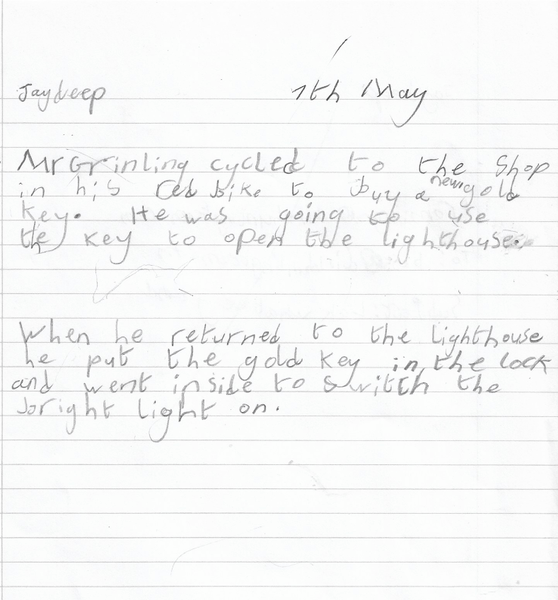 Jaydeep 7th May
Mr Grinling cycled to the Shop
in his red bike to buy a new gold
key. He was going to use
the key to open the lighthouse.
When he returned to the lighthouse
he put the gold key in the lock
and went inside to switch the
bright light on.